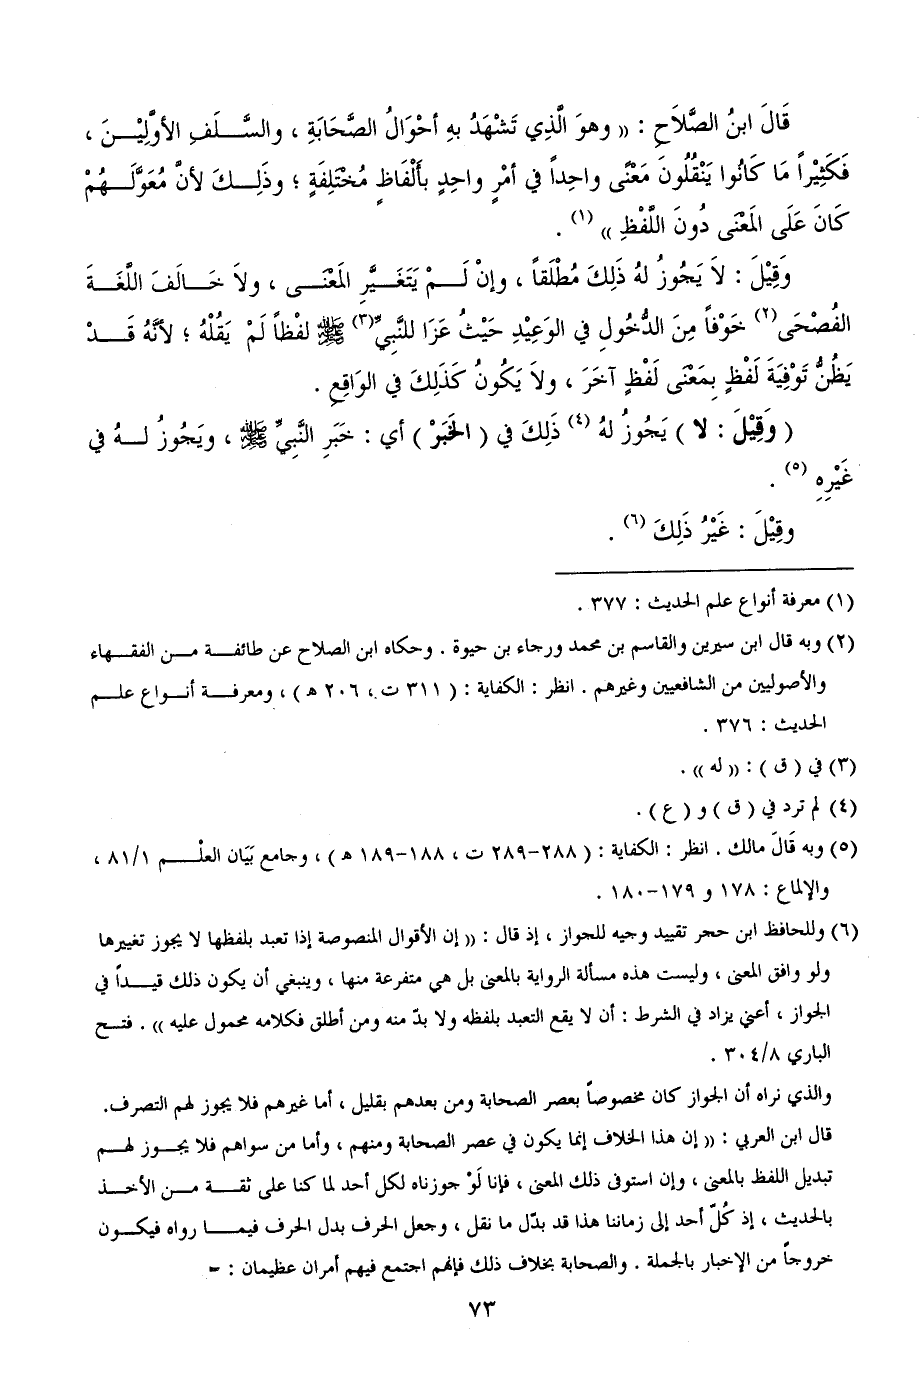 قَالَ ابنُ الصَّلَاحِ : (( وهوَ الَّذِي تَشْهَدُ بهِ أحْوَالُ الصَّحَابَةِ ، والسَّلَفِ الأوَّلِيْنَ ،
فَكَثِيْراً مَا كَانُوا يَنْقُلُونَ مَعْنًى واحِداً في أمْرٍ واحِدٍ بألْفَاظٍ مُخْتَلِفَةٍ ؛ وذَلِكَ لأنَّ مُعَوَّلَهُمْ
كَانَ عَلَى المَعْنَى دُونَ اللَّفْظِ )) (١) .
وَقِيْلَ : لاَ يَجُوزُ لهُ ذَلِكَ مُطْلَقاً ، وإنْ لَمْ يَتَغَيَّرِ المَعْنَى ، ولاَ خَالَفَ اللُّغَةَ
الفُصْحَى(٢) خَوْفاً مِنَ الدُّخُولِ في الوَعِيْدِ حَيْثُ عَزَا للنَّبِيِّ(٣) ﷺ لفْظاً لَمْ يَقُلْهُ ؛ لأنَّهُ قَدْ
يَظُنُّ تَوْفِيَةَ لَفْظٍ بِمَعْنَى لَفْظٍ آخَرَ ، ولاَ يَكُونُ كَذَلِكَ في الوَاقِعِ .
( وَقِيْلَ : لا ) يَجُوزُ لهُ (٤) ذَلِكَ في ( الخَبَرْ ) أي : خَبَرِ النَّبِيِّ ﷺ ، ويَجُوزُ لهُ في
غَيْرِهِ (٥) .
وقِيْلَ : غَيْرُ ذَلِكَ (٦) .
(١) معرفة أنواع علم الحديث : ٣٧٧ .
(٢) وبه قال ابن سيرين والقاسم بن محمد ورجاء بن حيوة . وحكاه ابن الصلاح عن طائفة من الفقهاء
والأصوليين من الشافعيين وغيرهم . انظر : الكفاية : ( ٣١١ ت ، ٢٠٦ ه ) ، ومعرفة أنواع علم
الحديث : ٣٧٦ .
(٣) في ( ق ) : (( له )) .
(٤) لم ترد في ( ق ) و ( ع ) .
(٥) وبه قَالَ مالك . انظر : الكفاية : ( ٢٨٨-٢٨٩ ت ، ١٨٨-١٨٩ ه ) ، وجامع بَيَان العلْم ٨١/١ ،
والإلماع : ١٧٨ و ١٧٩-١٨٠ .
(٦) وللحافظ ابن حجر تقييد وجيه للجواز ، إذ قال : (( إن الأقوال المنصوصة إذا تعبد بلفظها لا يجوز تغييرها
ولو وافق المعنى ، وليست هذه مسألة الرواية بالمعنى بل هي متفرعة منها ، وينبغي أن يكون ذلك قيداً في
الجواز ، أعني يزاد في الشرط : أن لا يقع التعبد بلفظه ولا بدّ منه ومن أطلق فكلامه محمول عليه )) . فتح
الباري ٣٠٤/٨ .
والذي نراه أن الجواز كان مخصوصاً بعصر الصحابة ومن بعدهم بقليل ، أما غيرهم فلا يجوز لهم التصرف.
قال ابن العربي : (( إن هذا الخلاف إنما يكون في عصر الصحابة ومنهم ، وأما من سواهم فلا يجوز لهم
تبديل اللفظ بالمعنى ، وإن استوفى ذلك المعنى ، فإنا لَوْ جوزناه لكل أحد لما كنا على ثقة من الأخذ
بالحديث ، إذ كُلّ أحد إلى زماننا هذا قد بدّل ما نقل ، وجعل الحرف بدل الحرف فيما رواه فيكون
خروجاً من الإخبار بالجملة . والصحابة بخلاف ذلك فإنهم اجتمع فيهم أمران عظيمان : =
٧٣